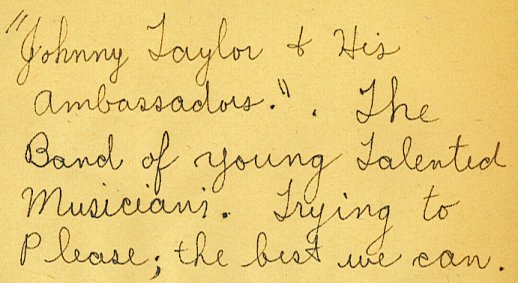 "Johnny Taylor & His
Ambassadors.". The
Band of young Talented
Musicians. Trying to
Please; the best we can.